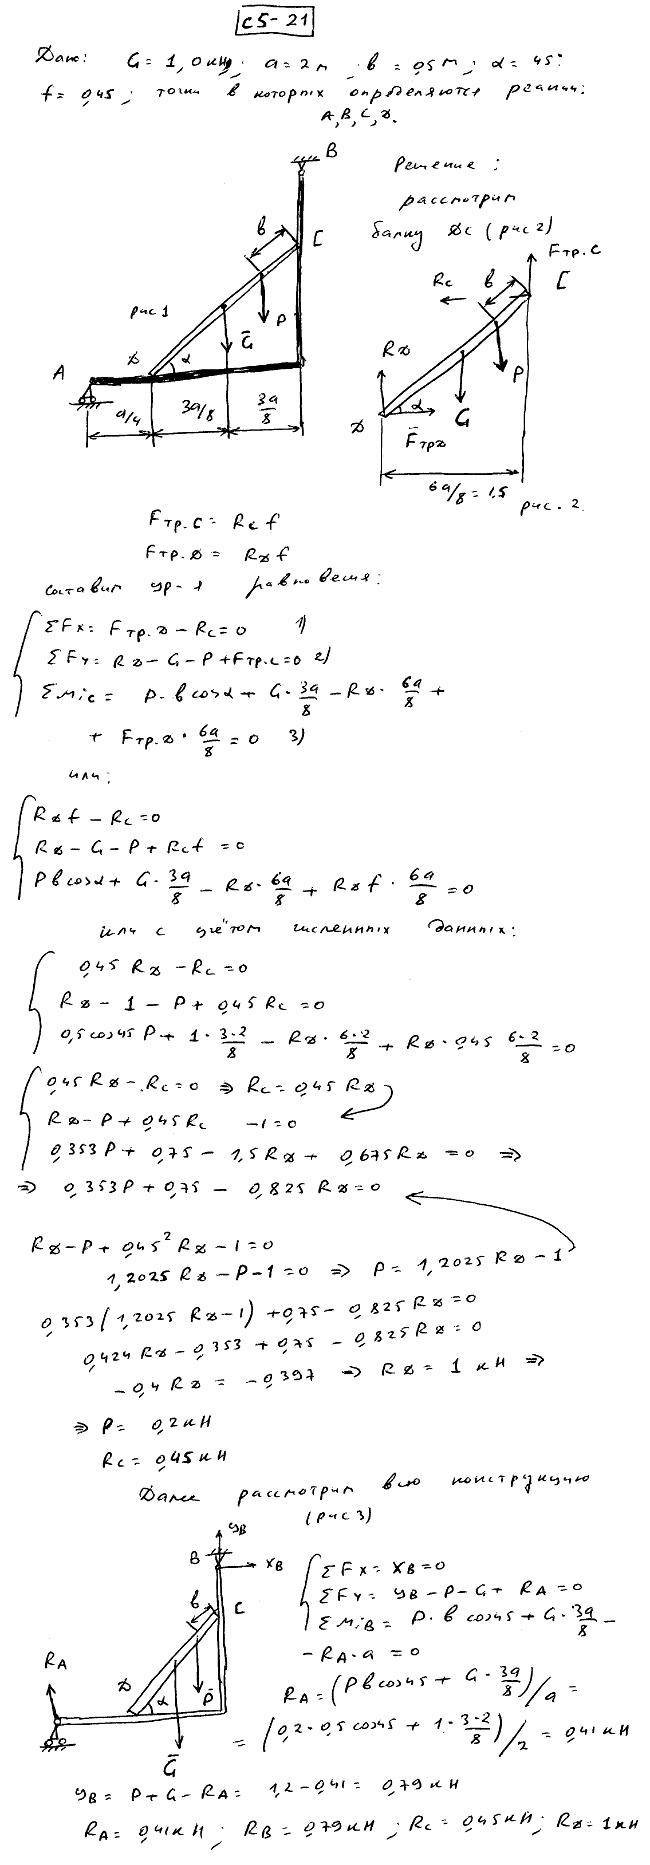 С5-21
Дано: G = 1,0 кН; a = 2 м; в = 0,5 м; α = 45°
f = 0,45; точки в которых определяются реакции:
A, B, C, D.
Решение:
рассмотрим
балку DC (рис 2)
B
C
в
P
рис 1
D
α
G
A
a/4
3a/8
3a/8
Fтр.C
C
Rc
в
RD
P
D
α
G
FтрD
6a/8 = 1,5
рис. 2.
Fтр.C = Rc f
Fтр.D = RD f
составим ур-я равновесия:
ΣFx = Fтр.D - Rc = 0 1)
ΣFy = RD - G - P + Fтр.C = 0 2)
ΣMic = P·в cosα + G·3a/8 - RD·6a/8 +
+ Fтр.D·6a/8 = 0 3)
или:
RD f - Rc = 0
RD - G - P + Rc f = 0
Pв cosα + G·3a/8 - RD·6a/8 + RD f·6a/8 = 0
или с учётом численных данных:
0,45 RD - Rc = 0
RD - 1 - P + 0,45 Rc = 0
0,5 cos45 P + 1·3·2/8 - RD·6·2/8 + RD·0,45 6·2/8 = 0
0,45 RD - Rc = 0 ⇒ Rc = 0,45 RD
RD - P + 0,45 Rc - 1 = 0
0,353 P + 0,75 - 1,5 RD + 0,675 RD = 0 ⇒
⇒ 0,353 P + 0,75 - 0,825 RD = 0
RD - P + 0,45² RD - 1 = 0
1,2025 RD - P - 1 = 0 ⇒ P = 1,2025 RD - 1
0,353 (1,2025 RD - 1) + 0,75 - 0,825 RD = 0
0,424 RD - 0,353 + 0,75 - 0,825 RD = 0
- 0,4 RD = - 0,397 ⇒ RD = 1 кН ⇒
⇒ P = 0,2 кН
Rc = 0,45 кН
Далее рассмотрим всю конструкцию
(рис 3)
yB
B
xB
в
C
RA
D
α
P
G
ΣFx = XB = 0
ΣFy = yB - P - G + RA = 0
ΣMiB = P·в cos45 + G·3a/8 -
- RA·a = 0
RA = (Pв cos45 + G·3a/8)/a =
= (0,2·0,5 cos45 + 1·3·2/8)/2 = 0,41 кН
yB = P + G - RA = 1,2 - 0,41 = 0,79 кН
RA = 0,41 кН; RB = 0,79 кН; Rc = 0,45 кН; RD = 1 кН